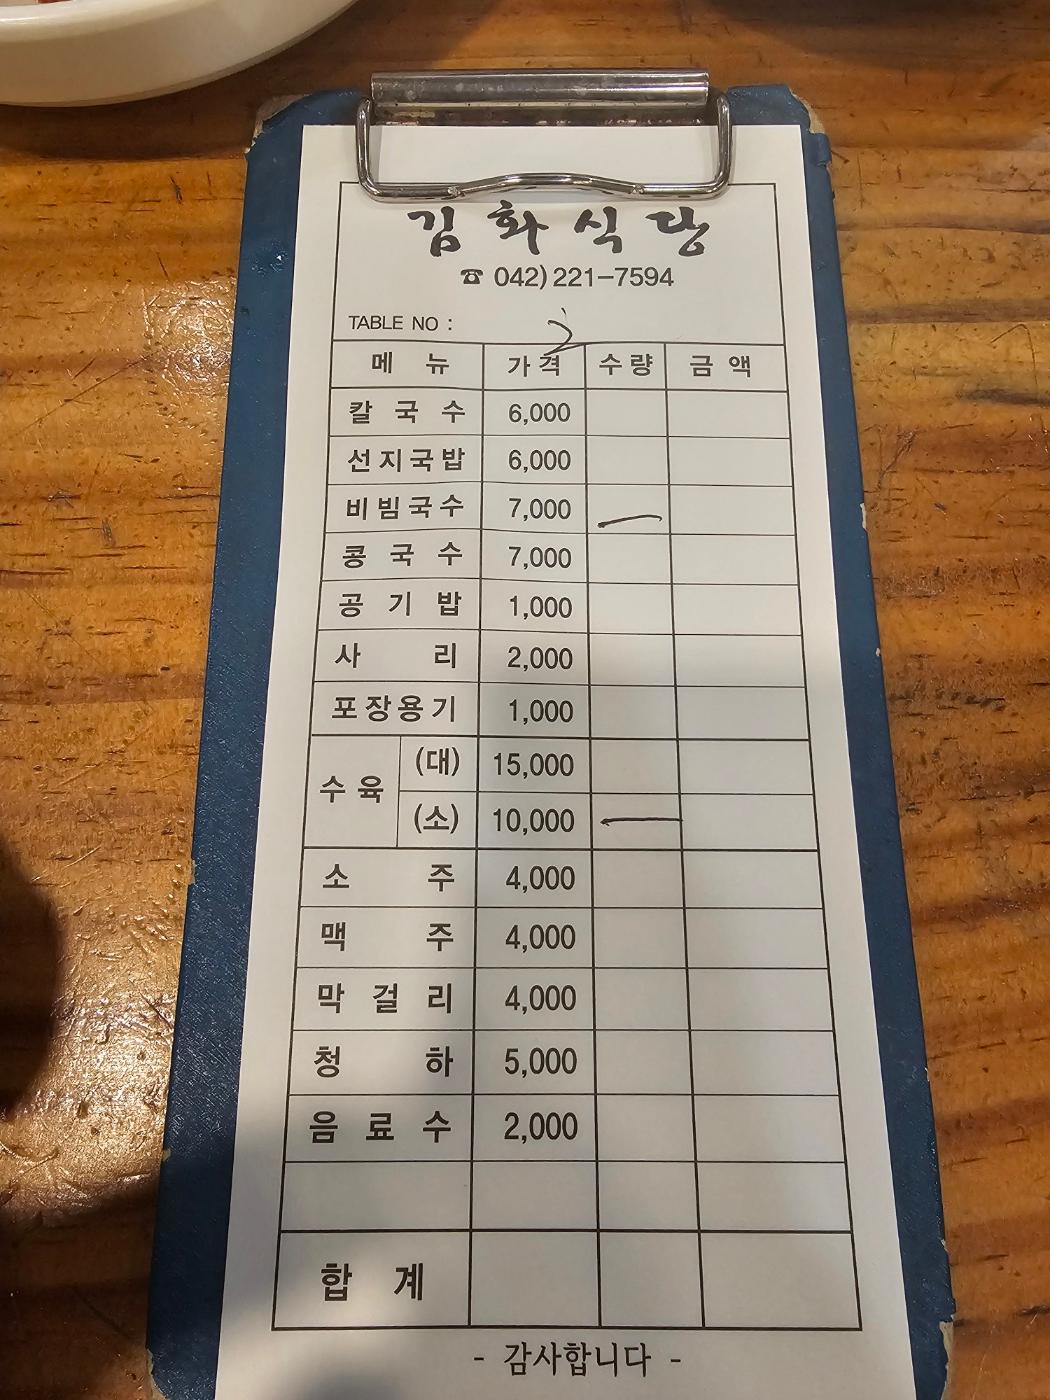 김화식당
☎ 042) 221-7594
TABLE NO : 2
메 뉴 가 격 수 량 금 액
칼 국 수 6,000
선지국밥 6,000
비빔국수 7,000 一
콩 국 수 7,000
공 기 밥 1,000
사 리 2,000
포장용기 1,000
수 육 (대) 15,000
(소) 10,000 一
소 주 4,000
맥 주 4,000
막 걸 리 4,000
청 하 5,000
음 료 수 2,000
합 계
- 감사합니다 -